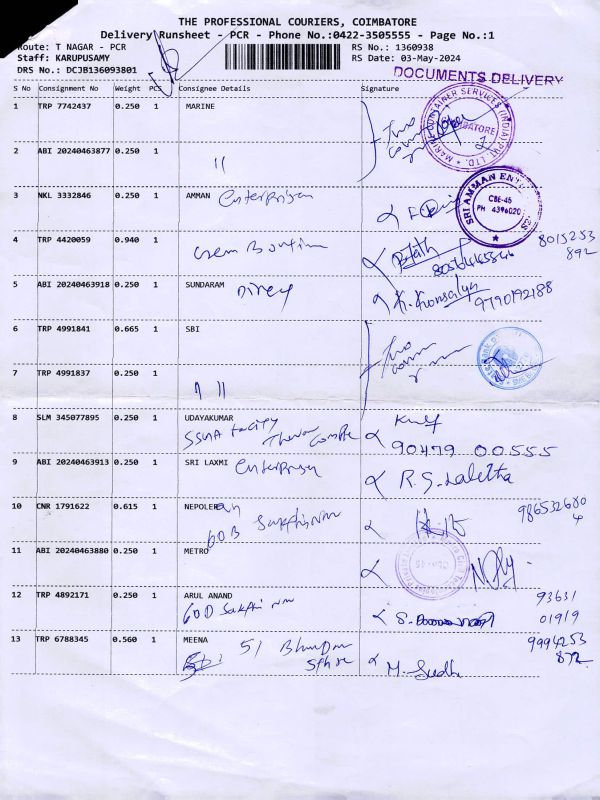 THE PROFESSIONAL COURIERS, COIMBATORE
Delivery Runsheet - PCR - Phone No.:0422-3505555 - Page No.:1
Route: T NAGAR - PCR RS No.: 1360938
Staff: KARUPUSAMY RS Date: 03-May-2024
DRS No.: DCJB136093801
DOCUMENTS DELIVERY
S No Consignment No Weight PCS Consignee Details Signature
1 TRP 7742437 0.250 1 MARINE
MARINE CONTAINER SERVICES (INDIA) PVT. LTD.
COIMBATORE
2 ABI 20240463877 0.250 1 11
3 NKL 3332846 0.250 1 AMMAN Enterprises
SRI AMMAN ENT
CBE-45
PH 4396020
4 TRP 4420059 0.940 1
8015253
892
5 ABI 20240463918 0.250 1 SUNDARAM
K. Kousalya 9790192188
6 TRP 4991841 0.665 1 SBI
7 TRP 4991837 0.250 1 11
8 SLM 345077895 0.250 1 UDAYAKUMAR
90479 00555
9 ABI 20240463913 0.250 1 SRI LAXMI Enterprises
R.S. Laletha
10 CNR 1791622 0.615 1 NEPOLEan
60B
986532680
4
11 ABI 20240463880 0.250 1 METRO
12 TRP 4892171 0.250 1 ARUL ANAND
60D
93631
01919
13 TRP 6788345 0.560 1 MEENA
51
M. Sudha
9994253
872